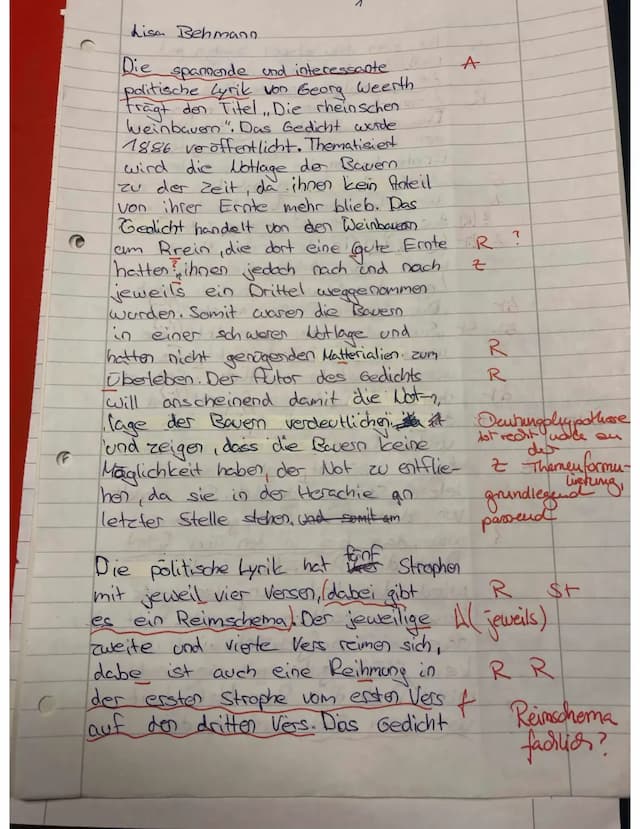 Lisa Behmann
Die spannende und interessante A
politische Lyrik von Georg Weerth
trägt den Titel „Die rheinschen
Weinbauern". Das Gedicht wurde
1886 veröffentlicht. Thematisiert
wird die Notlage der Bauern
zu der Zeit, da ihnen kein Anteil
von ihrer Ernte mehr blieb. Das
Gedicht handelt von den Weinbauern
am Rrein, die dort eine gute Ernte R ?
hatten, ihnen jedoch nach und nach Z
jeweils ein Drittel weggenommen
wurden. Somit waren die Bauern
in einer schweren Notlage und
hatten nicht genügenden Matterialien zum R
überleben. Der Autor des Gedichts R
will anscheinend damit die Not-
lage der Bauern verdeutlichen Deutungshypothese
und zeigen, dass die Bauern keine ist recht nahe an der
Möglichkeit haben, der Not zu entflie- Z Themenformulierung,
hen, da sie in der Herachie an grundlegend
letzter Stelle stehen. und somit am passend
Die politische Lyrik hat fünf Strophen
mit jeweil vier Versen, (dabei gibt R St
es ein Reimschema). Der jeweilige A (jeweils)
zweite und vierte Vers reimen sich,
dabe ist auch eine Reihmung in R R
der ersten Strophe vom ersten Vers f
auf den dritten Vers. Das Gedicht Reimschema
fachlich?